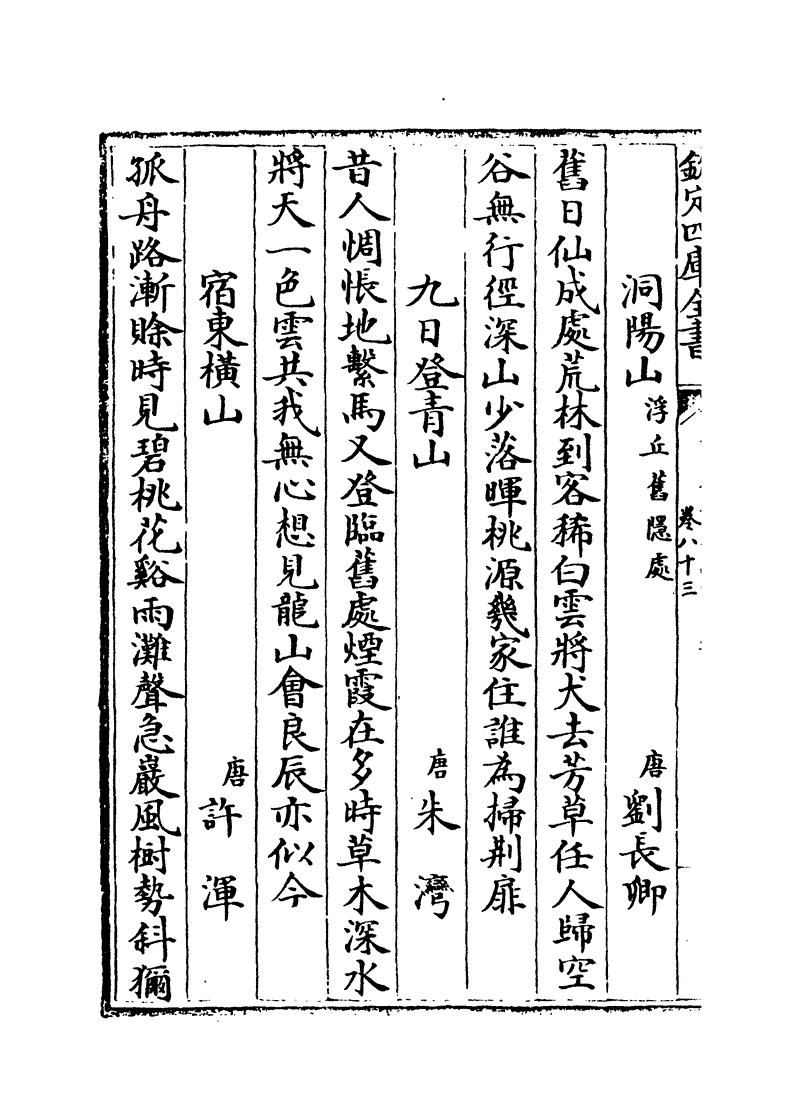 欽定四庫全書
卷八十三
洞陽山 浮丘舊隱處 唐 劉長卿
舊日仙成處荒林到客稀白雲將犬去芳草任人歸空
谷無行徑深山少落暉桃源幾家住誰為掃荆扉
九日登青山 唐 朱灣
昔人惆悵地繫馬又登臨舊處煙霞在多時草木深水
將天一色雲共我無心想見龍山會良辰亦似今
宿東橫山 唐 許渾
孤舟路漸賒時見碧桃花谿雨灘聲急巖風樹勢斜獼